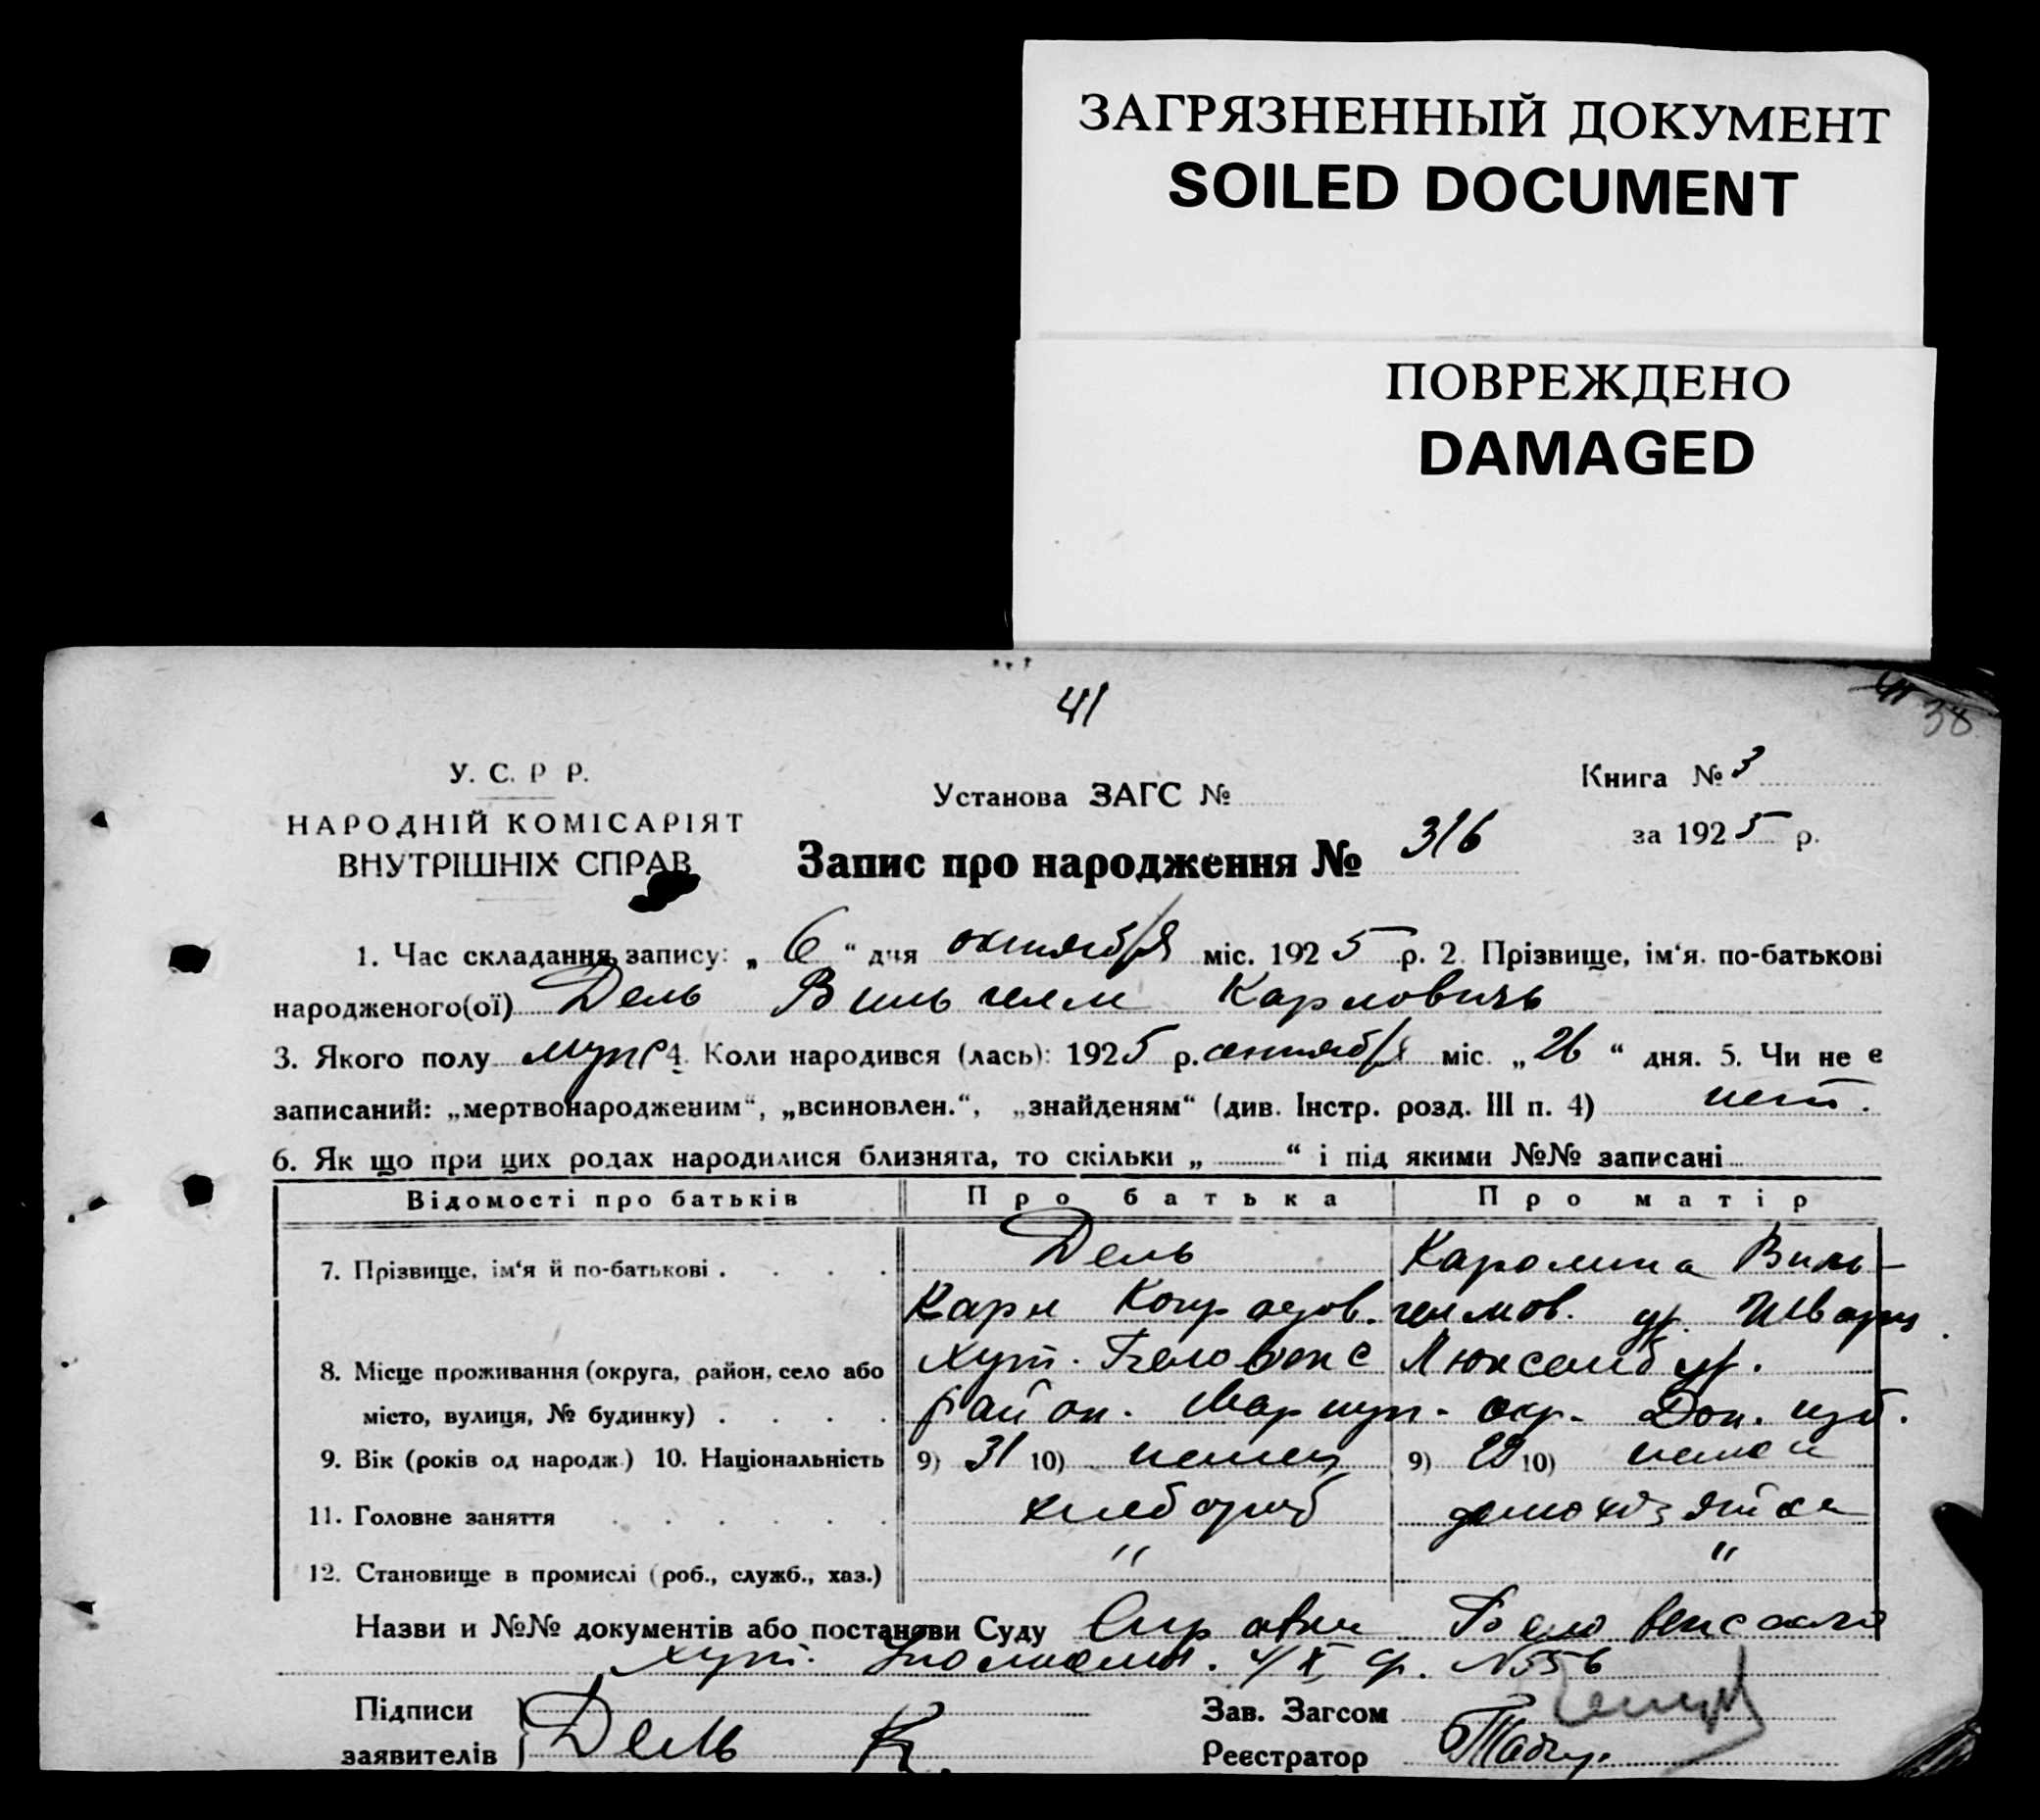 ЗАГРЯЗНЕННЫЙ ДОКУМЕНТ
SOILED DOCUMENT
ПОВРЕЖДЕНО
DAMAGED
41
38
У. С. Р Р.
НАРОДНІЙ КОМІСАРІЯТ
ВНУТРІШНІХ СПРАВ
Установа ЗАГС №
Запис про народження № 316
Книга № 3
за 1925 р.
1. Час складання запису: „ 6 “ дня октября міс. 1925 р. 2. Прізвище, ім‘я. по-батькові
народженого(ої) Дель Вильгельм Карловичь
3. Якого полу муж 4. Коли народився (лась): 1925 р. сентября міс. „ 26 “ дня. 5. Чи не е
записаний: „мертвонародженим“, „всиновлен.“, „знайденям“ (див. Інстр. розд. III п. 4) нет.
6. Як що при цих родах народилися близнята, то скільки „ “ і під якими №№ записані
Відомості про батьків Про батька Про матір
7. Прізвище, ім‘я й по-батькові . . . . Дель Каролина Виль-
Карл Конрадов. гельмов. ур. Шварц
8. Місце проживання (округа, район, село або хут. Люксембург.
місто, вулиця, № будинку) . . . . район. Мариуп. окр. Дон. губ.
9. Вік (років од народж.) 10. Національність 9) 31 10) немец 9) 29 10) немка
11. Головне заняття . . . . . . хлебороб домохозяйка
12. Становище в промислі (роб., служб., хаз.) " "
Назви и №№ документів або постанови Суду Справка
хут. 4/X ф. №556
Підписи
заявителів Дель К.
Зав. Загсом
Реєстратор